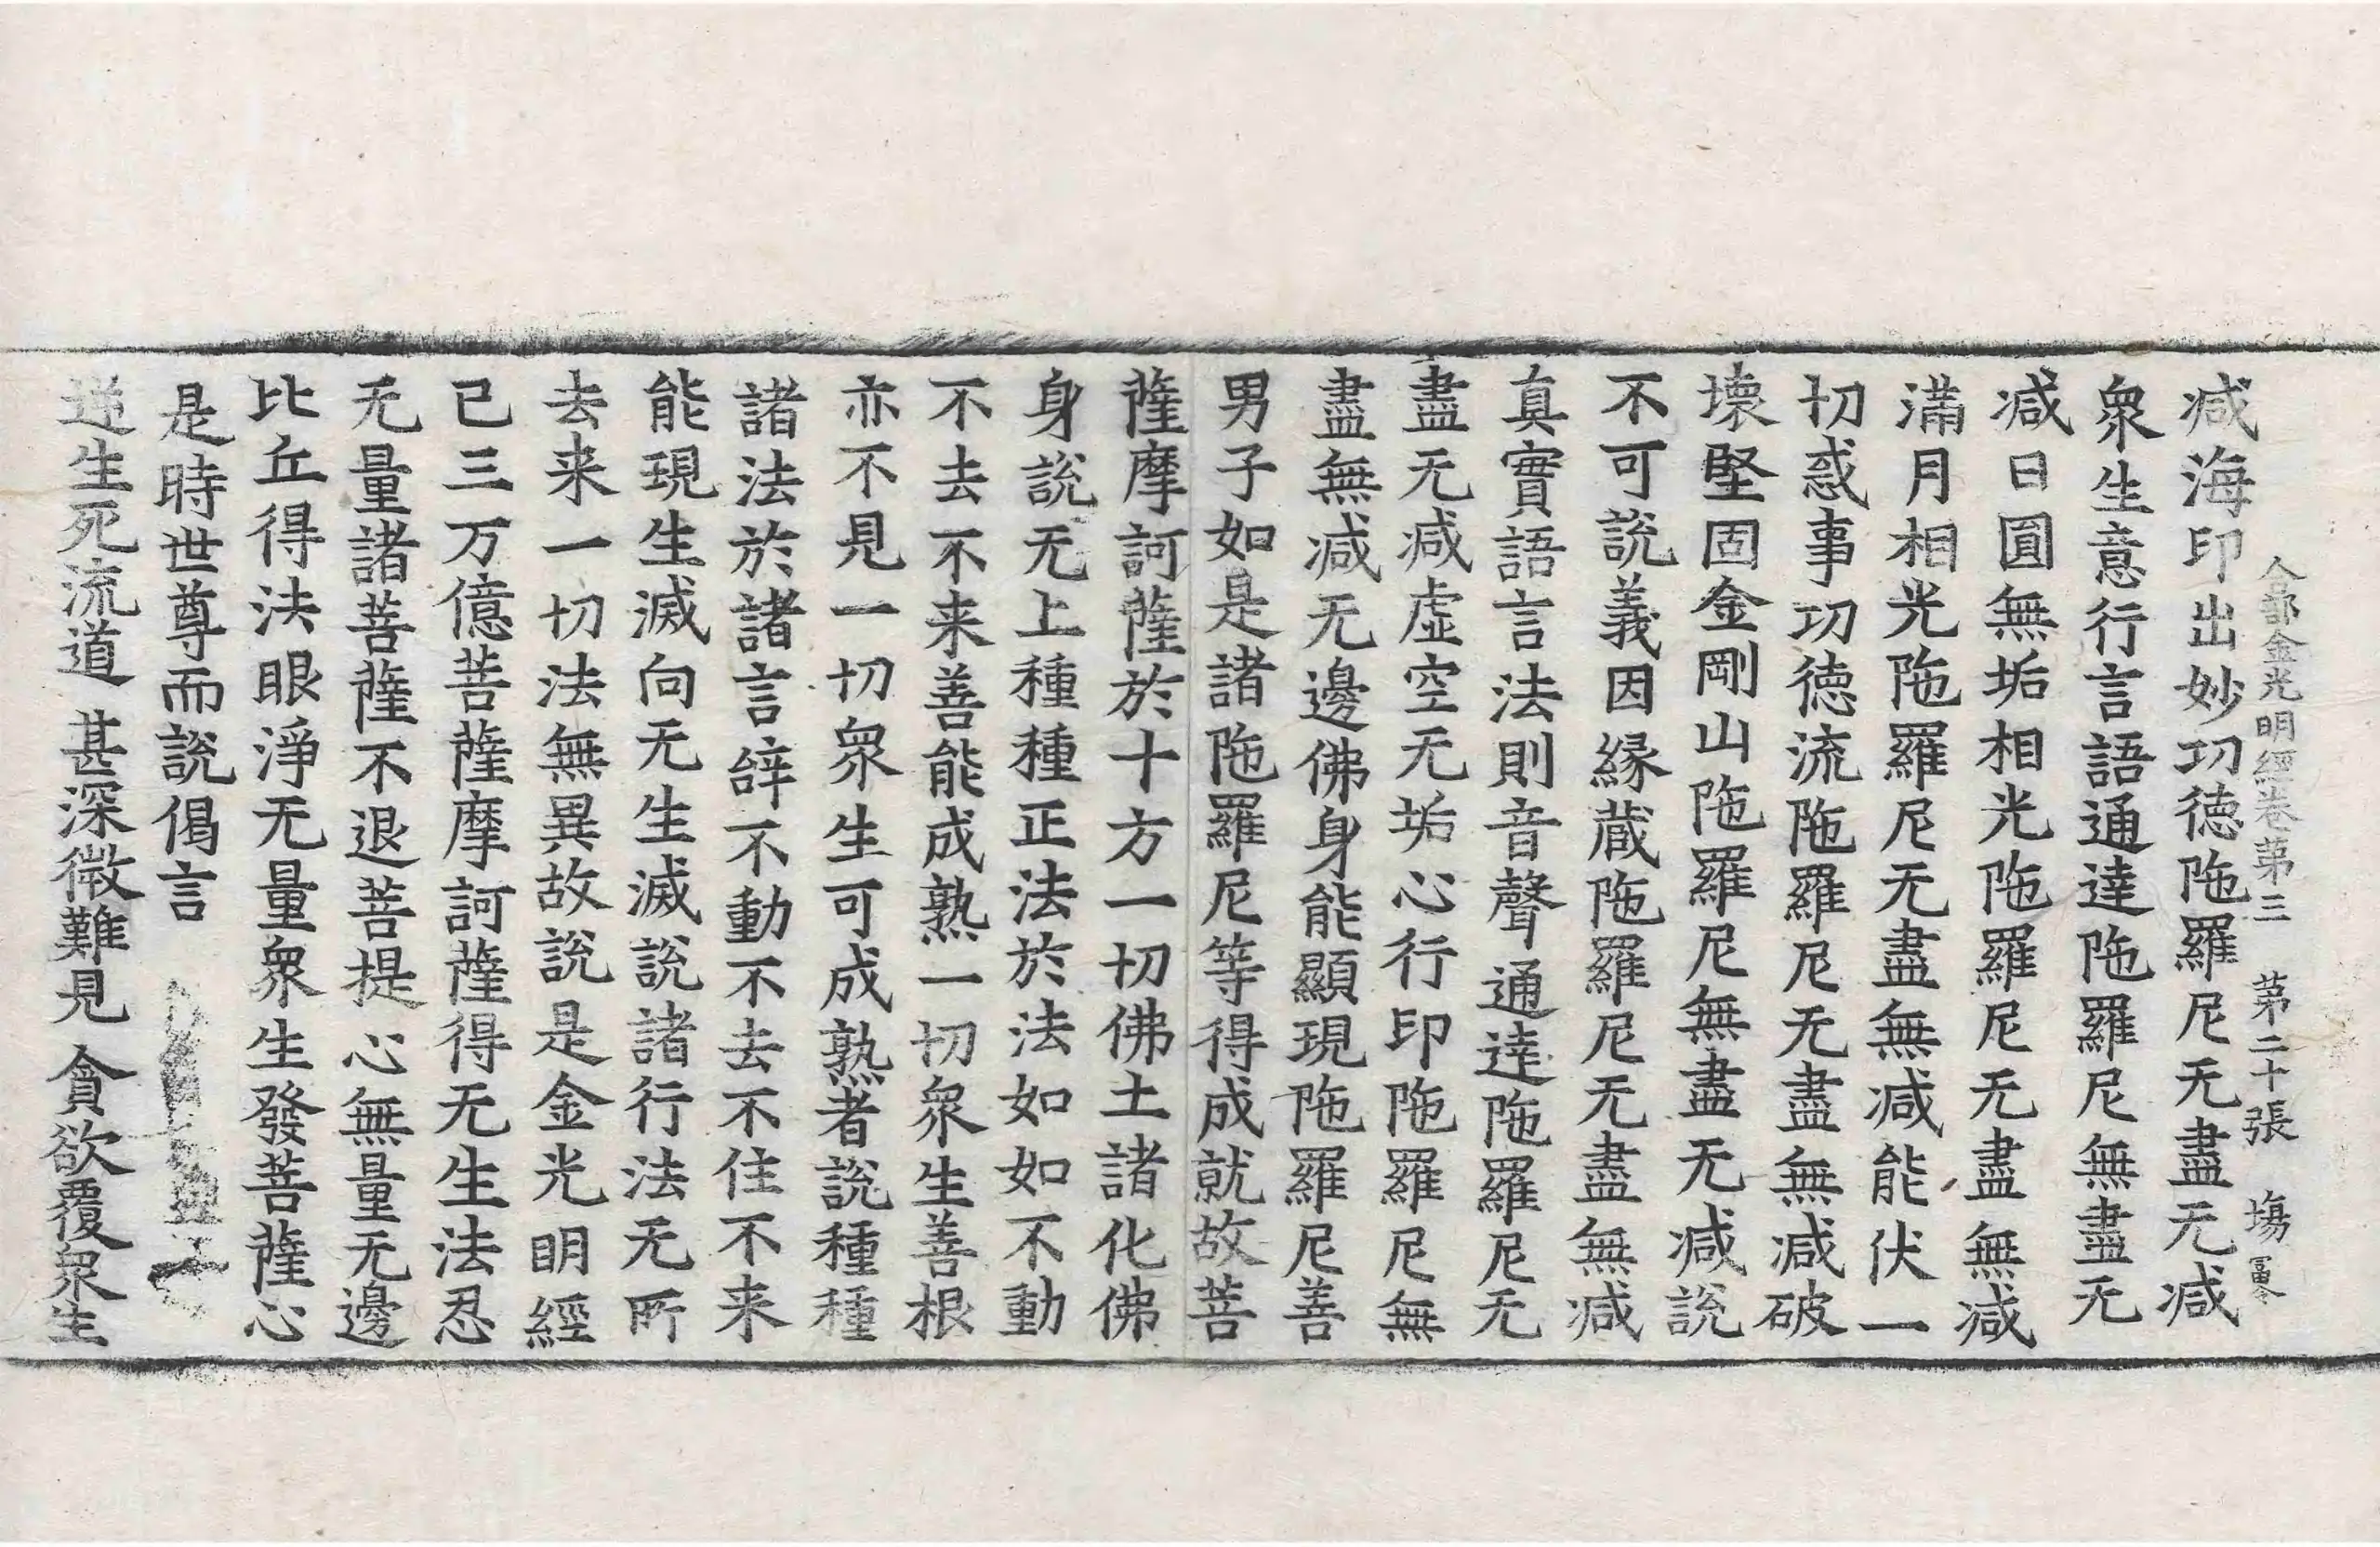 合部金光明經卷第三 第二十張 塲
减海印出妙功德陁羅尼无盡无减
衆生意行言語通達陁羅尼無盡无
减日圓無垢相光陁羅尼无盡無减
滿月相光陁羅尼无盡無减能伏一
切惑事功德流陁羅尼无盡無减破
壊堅固金剛山陁羅尼無盡无减説
不可説義因縁蔵陁羅尼无盡無减
真實語言法則音聲通達陁羅尼无
盡无减虚空无垢心行印陁羅尼無
盡無减无邊佛身能顯現陁羅尼善
男子如是諸陁羅尼等得成就故菩
薩摩訶薩於十方一切佛土諸化佛
身説无上種種正法於法如如不動
不去不来善能成熟一切衆生善根
亦不見一切衆生可成熟者説種種
諸法於諸言辝不動不去不住不来
能現生滅向无生滅説諸行法无所
去来一切法無異故説是金光明經
已三万億菩薩摩訶薩得无生法忍
无量諸菩薩不退菩提心無量无邊
比丘得法眼淨无量衆生發菩薩心
是時世尊而説偈言
逆生死流道 甚深微難見 貪欲覆衆生